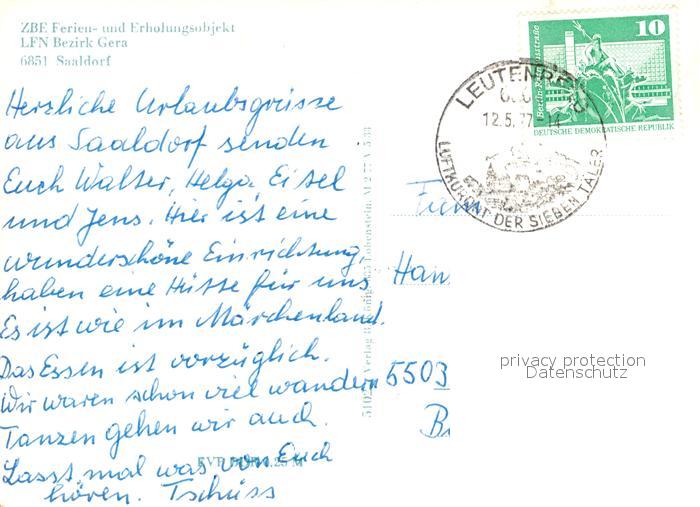 ZBE Ferien- und Erholungsobjekt
LFN Bezirk Gera
6851 Saaldorf
Herzliche Urlaubsgrüsse
aus Saaldorf senden
Euch Walter, Helga Eitel
und Jens. Hier ist eine
wunderschöne Einrichtung,
haben eine Hütte für uns
Es ist wie im Märchenland.
Das Essen ist vorzüglich.
Wir waren schon viel wandern
Tanzen gehen wir auch.
Lasst mal was von Euch
hören. Tschüss
EVP
Verlag
10
DEUTSCHE DEMOKRATISCHE REPUBLIK
12.5.77-14
LUFTKURORT DER SIEBEN TÄLER
Fam
Han
5503
privacy protection
Datenschutz